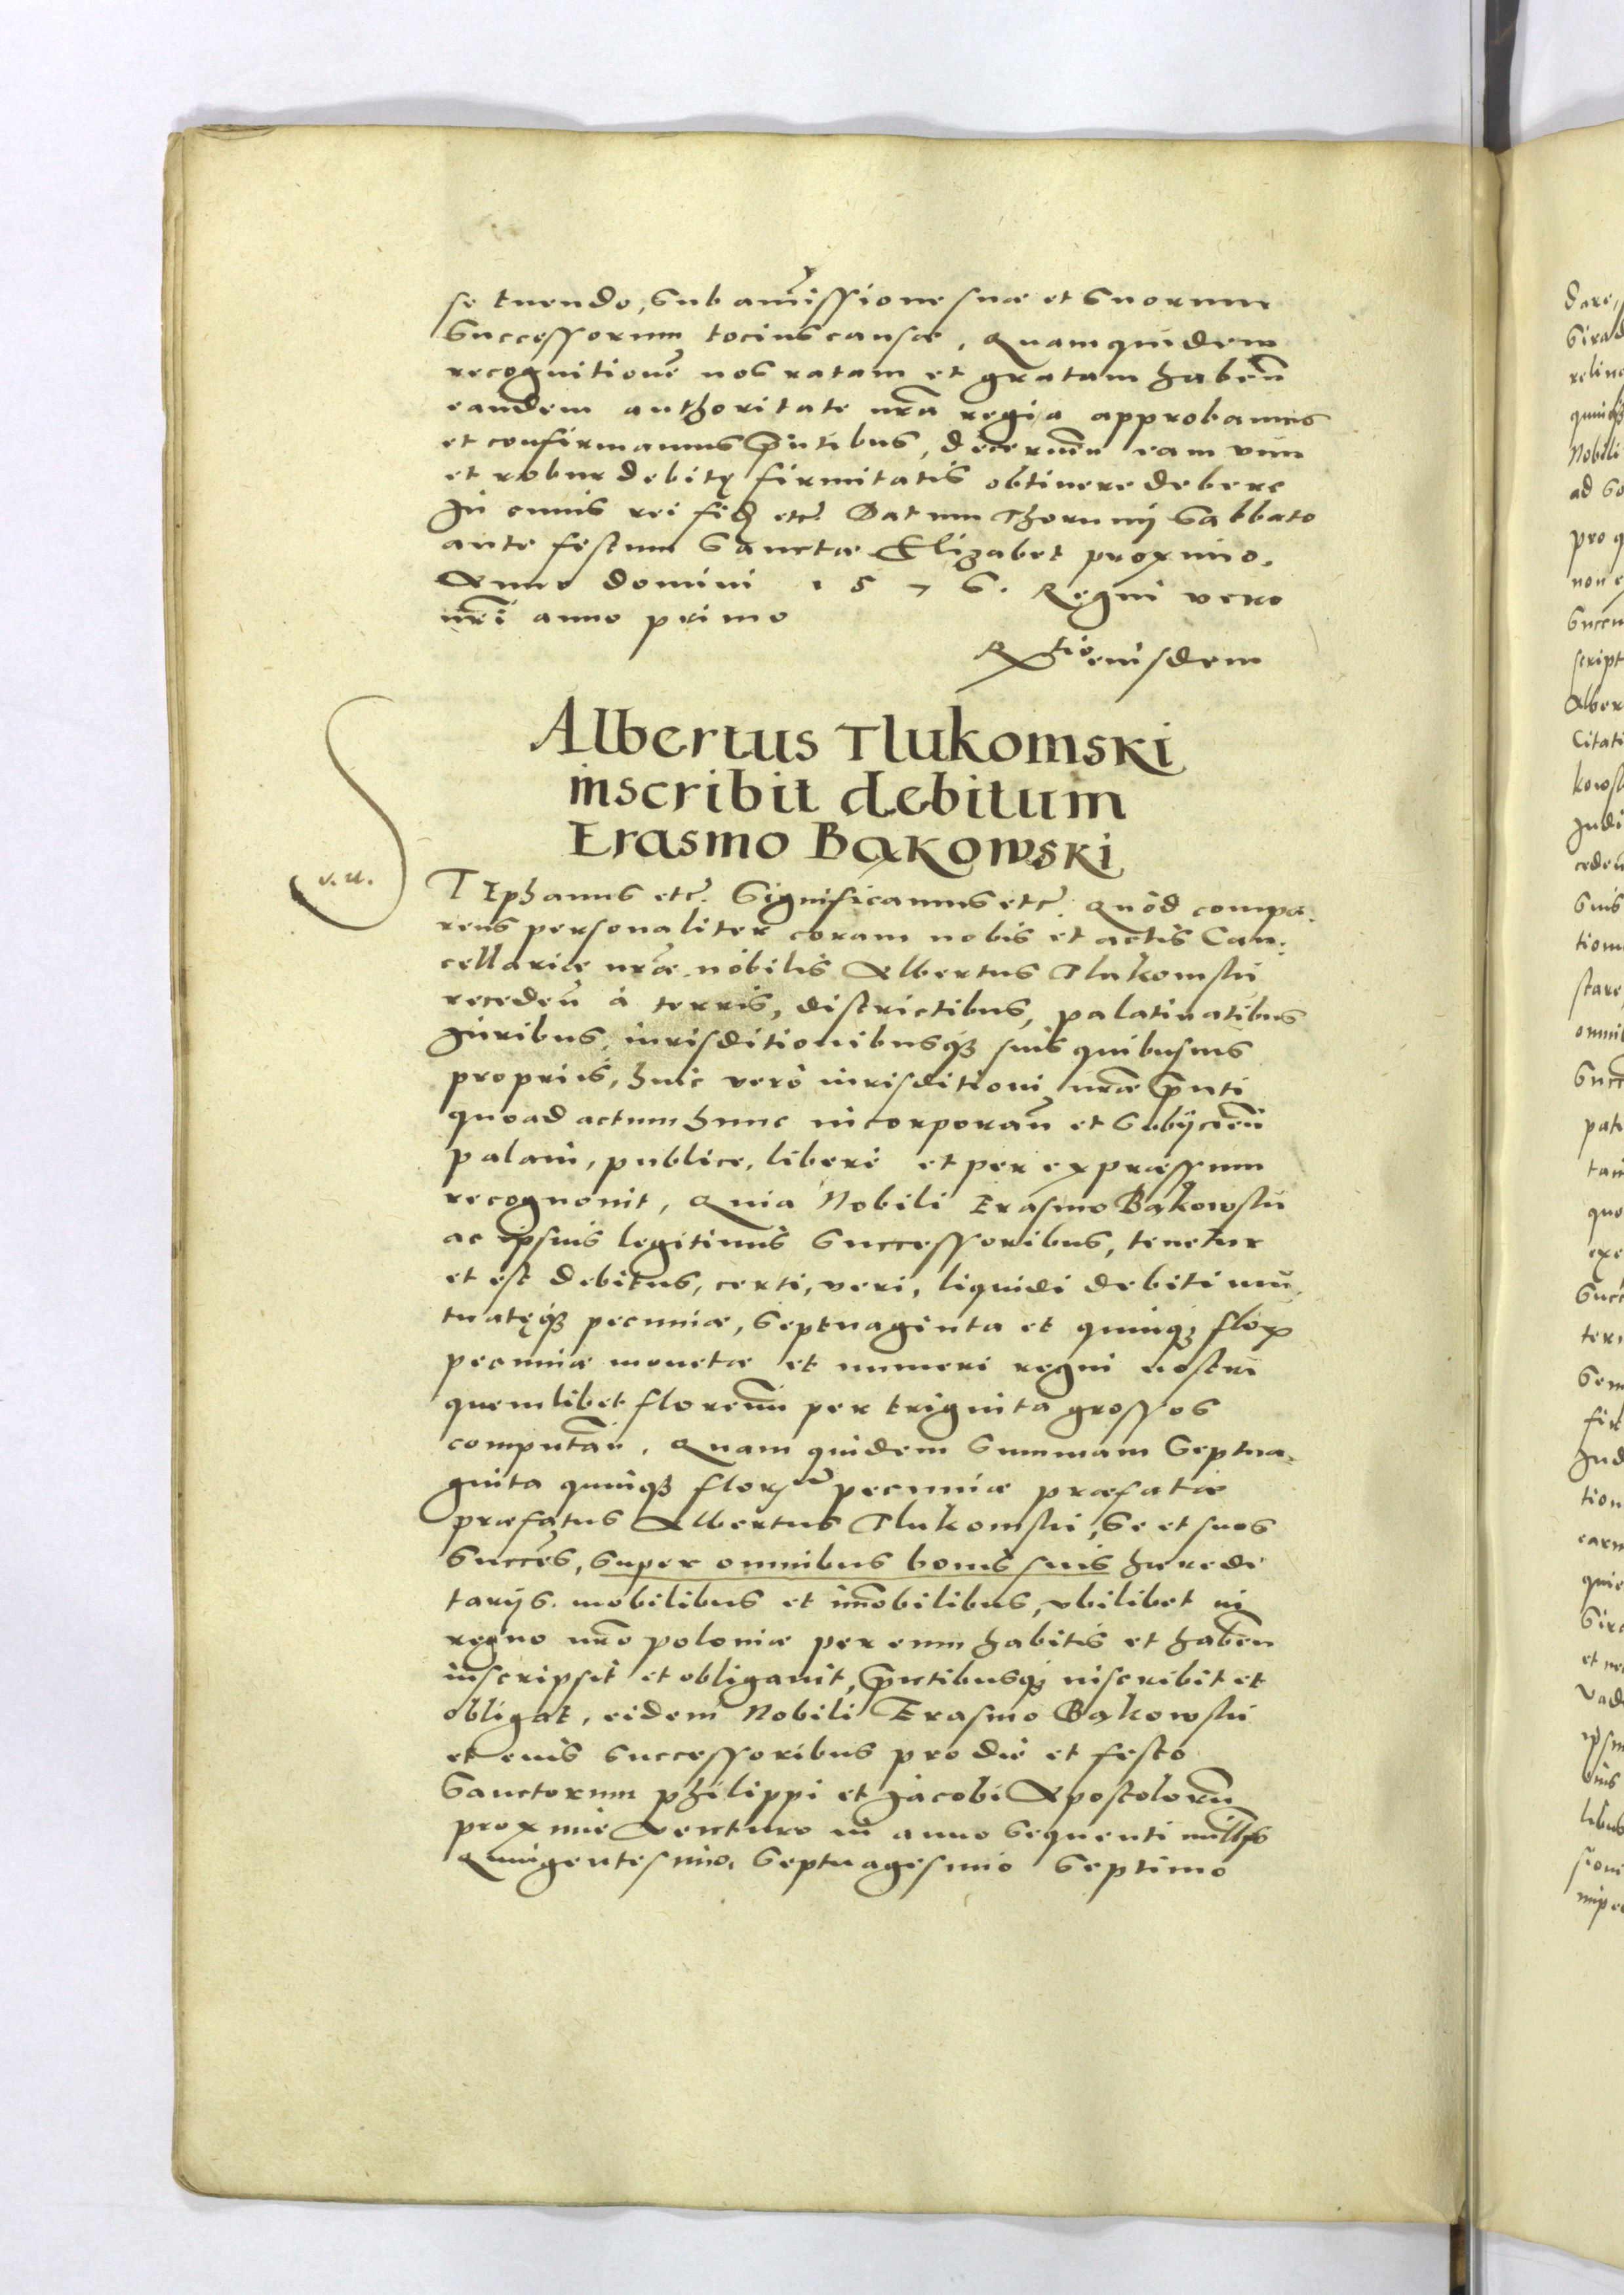 se tuendo, sub amissione suæ et suorum
successorum tocius causæ, Quam quidem
recognitionē nos ratam et gratam habeñ
eandem authoritate nrã regia approbamus
et confirmamus pñtibus, decerneñ eam vim
et robur debitę firmitatis obtinere debere
In cuius rei fid etc̃. Datum Thorunij Sabbato
ante festum Sanctæ Elizabet proximo.
Anno domini 1576. Regni vero
nrĩ anno primo
Rtio eiusdem
Albertus Tlukomski
inscribit debitum
Erasmo Bąkowski
v. u.
STEphanus etc̃. Significamus etc̃. Quòd compa-
rens personaliter coram nobis et actis Can-
cellariæ nrãe nobilis Albertus Tlukomski
recedeñ à terris, districtibus, palatinatibus
Iuribus, iurisditionibusq; suis quibusuis
proprijs, huic verò iurisditioni nrãe pñti
quoad actum hunc incorporañ et subijcieñ
palam, publice, liberè et per expræssum
recognouit, Quia Nobili Erasmo Bąkowski
ac ipsius legitimis successoribus, tenetur
et est debitus, certi, veri, liquidi debiti mu-
tuatęq; pecuniæ, septuaginta et quinq; flor
pecuniæ monetæ et numeri regni nostri
quemlibet florenũ per triginta grossos
computañ. Quam quidem summam septua-
ginta quinq; flor pecuniæ præfatæ
præfatus Albertus Tlukomski, se et suos
succes̃, super omnibus bonis suis hæredi
tarijs. mobilibus et im̃obilibus, vbilibet in
regno nrõ poloniæ per eum habitis et habeñ
inscripsit et obligauit, pñtibusq; inscribit et
obligat, eidem Nobili Erasmo Bąkowski
et eius successoribus pro die et festo
Sanctorum philippi et Iacobi Apostolorũ
proximè venturo in anno sequenti millõ
Quingentesimo, septuagesimo septimo